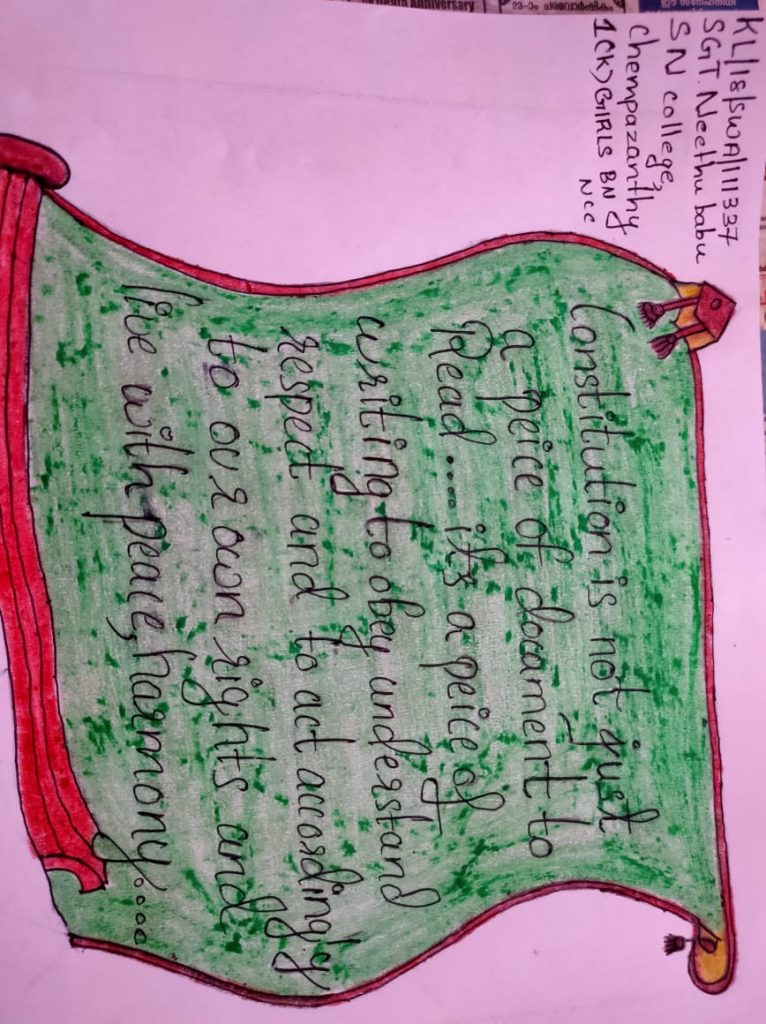 KL/18/SWA/111337
SGT. Neethu babu
S N college,
chempazanthy
1(K) GIRLS BN
NCC
Constitution is not just
a peice of document to
Read .... it's a peice of
writing to obey understand
respect and to act accordingly
to our own rights and
live with peace, harmony....
Anniversary
23-ാം